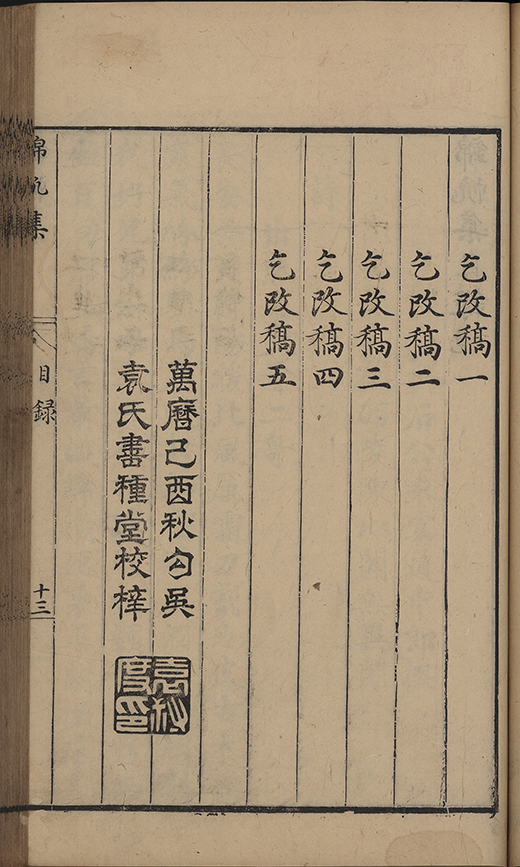 乞改稿一
乞改稿二
乞改稿三
乞改稿四
乞改稿五
萬曆己酉秋勾吳
袁氏書種堂校梓
袁叔度印
錦帆集
目録
十三